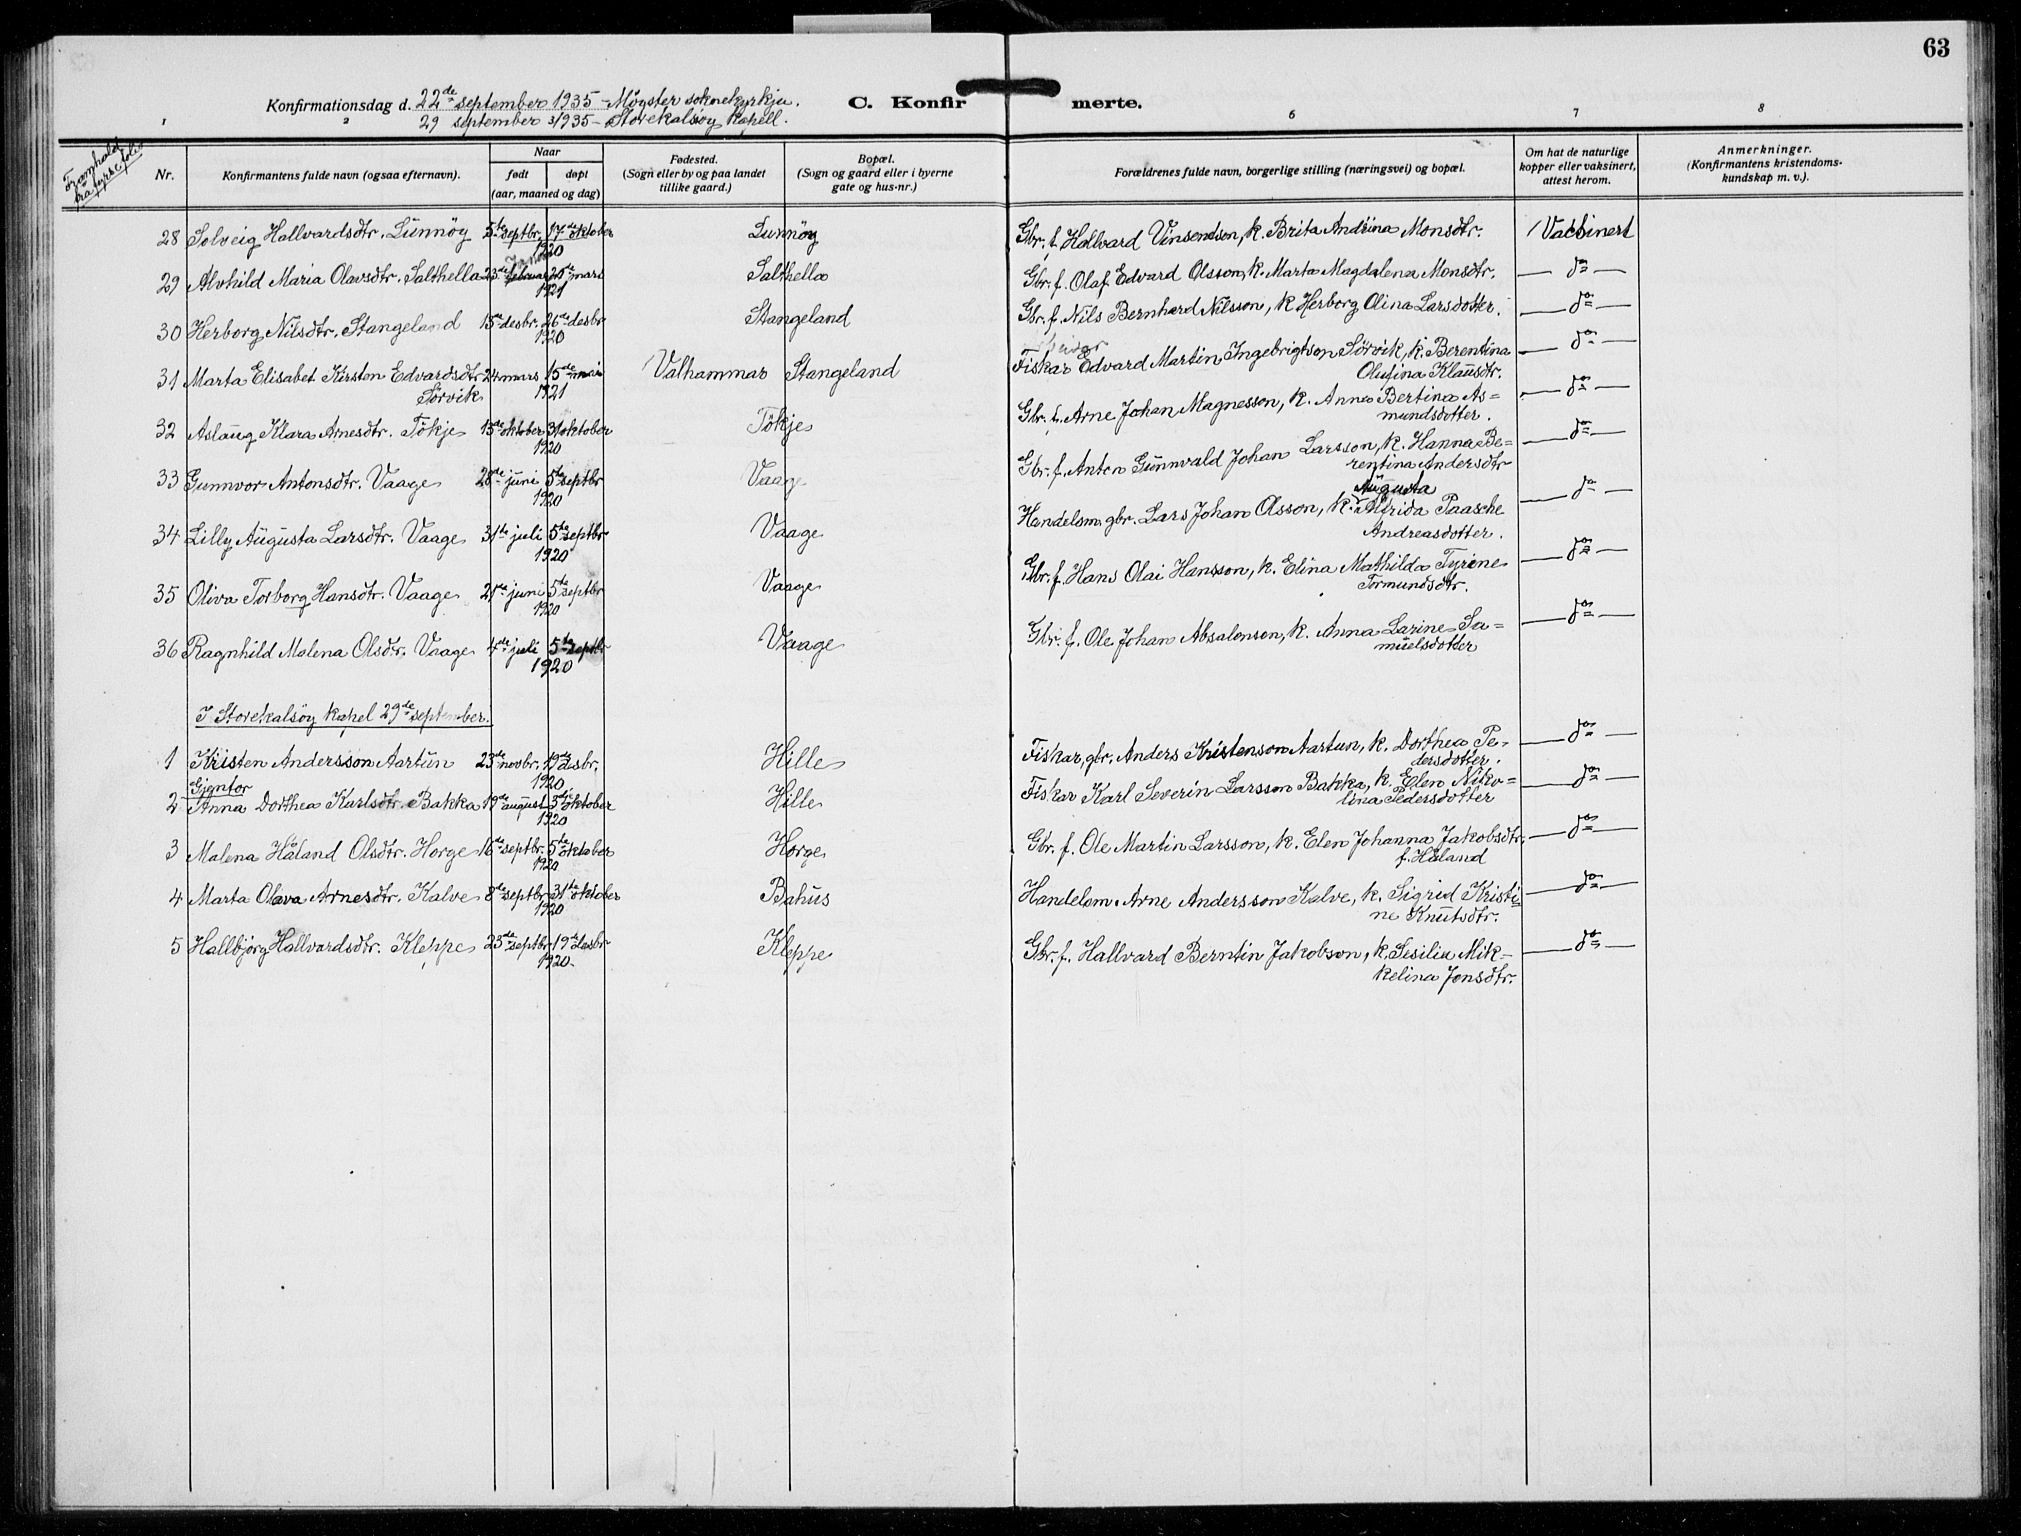 63
Konfirmationsdag d. 22de september 1935 - Møgster soknekyrkju.
29 september 1935 - Storekalsøy kapell.
C. Konfir merte.
1 2 6 7 8
Framhald frå fyrste folio
Nr.
Konfirmantens fulde navn (ogsaa efternavn).
Naar
født døpt
(aar, maaned og dag)
Fødested.
(Sogn eller by og paa landet
tillike gaard.)
Bopæl.
(Sogn og gaard eller i byerne
gate og hus-nr.)
Forældrenes fulde navn, borgerlige stilling (næringsvei) og bopæl.
Om hat de naturlige
kopper eller vaksinert,
attest herom.
Anmerkninger.
(Konfirmantens kristendoms-
kundskap m. v.).
28 Solveig Hallvardsdtr. Lünnöy 5te septbr. 17de oktober Lunnöy Gbr. f. Hallvard Vinsendson, k. Brita Andrina Monsdtr. Vacsinert
1920
29 Alvhild Maria Olavsdtr. Salthella 23de februar 20de mars Salthella Gbr. f. Olaf Edvard Olsson, k. Marta Magdalena Monsdtr. — do —
1921
30 Herborg Nilsdtr. Stangeland 15de desbr. 26de desbr Stangeland Gbr. f. Nils Bernhard Nilsson, k Herborg Olina Larsdotter. — do —
1920
31 Marta Elisabet Kirsten Edvardsdtr 24 mars 15de mai Valhammar Stangeland Fiskar Edvard Martin Ingebrigtson Sörvik, k. Berentina — do —
Sörvik 1921 Olufina Klausdtr.
32 Aslaug Klara Arnesdtr. Tökje 15de oktober 31 oktober Tökje Gbr. f. Arne Johan Magnesson, k. Anna Bertina As= — do —
1920 mundsdotter.
33 Gunnvor Antonsdtr. Vaage 28de juni 5te septbr Vaage Gbr. f. Anton Günnvald Johan Larsson, k. Hanna Be= — do —
1920 rentina Andersdtr
34 Lilly Augusta Larsdtr. Vaage 31te juli 5te septbr Vaage Handelsm. gbr. Lars Johan Olsson, k. Augusta Alfrida Paasche — do —
1920 Andreasdotter.
35 Oliva Torborg Hansdtr. Vaage 21de juni 5te septbr Vaage Gbr. f. Hans Olai Hansson, k. Elina Mathilda Tyrine — do —
1920 Tormundsdtr.
36 Ragnhild Malena Olsdtr. Vaage 4de juli 5te septbr Vaage Gbr. f. Ole Johan Absalonson, k. Anna Larine Sa= — do —
1920 muelsdotter
I Storekalsöy kapel 29de september.
1 Kristen Andersson Aartun 23de novbr. 19de desbr. Hille Fiskar, gbr. Anders Kristenson Aartun, k. Dorthea Pe- — do —
1920 dersdotter.
Gjentor
2 Anna Dorthea Karlsdtr. Bakka 19de august 3dje oktober Hille Fiskar Karl Severin Larsson Bakka, k. Elen Niko= — do —
1920 lina Pedersdotter
3 Malena Håland Olsdtr. Horge 16de septbr. 5te oktober Horge Gbr. f. Ole Martin Larsson, k. Elen Johanna Jakobsdtr. — do —
1920 f. Håland
4 Marta Olava Arnesdtr. Kalve 8de septbr 31te oktober Bahus Handelsm. Arne Andersson Kalve, k. Sigrid Kristi= — do —
1920 ne Knutsdtr.
5 Hallbjörg Hallvardsdtr. Kleppe 23de septbr 19de desbr Kleppe Gbr. f. Hallvard Berntin Jakobson, k. Sesilia Mik- — do —
1920. kelina Jonsdtr.